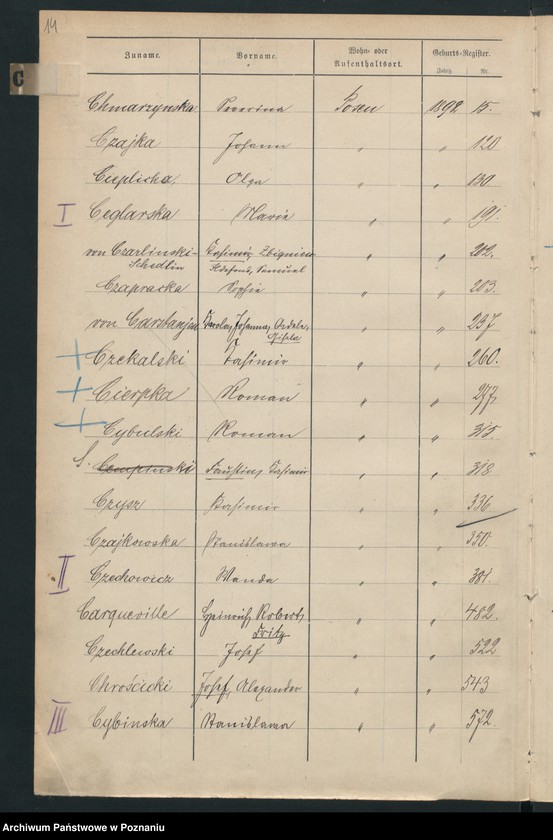 14
C
Zuname. Vorname. Wohn- oder Aufenthaltsort. Geburts-Register.
Jahrg. Nr.
Chmarzynska Severina Posen 1892 15.
Czajka Johann " " 120
Cieplicha, Olga " " 130
I Ceglarska Marie " " 191.
von Czarlinski- Kasimir Zbigniew " " 202.
Schedlin Ildefons, Samuel
Czapracka Sophie " " 203.
von Carstanjen Johanna, Adele, " " 237
Gisela
+ Czekalski Kasimir " " 260.
+ Cierpka Roman " " 277.
+ Cybulski Roman " " 315.
S. Cempinski Faustin, Kasimir " " 318
Czysz Kasimir " " 336.
Czajkowska Stanislawa " " 350.
II Czechowicz Wanda " " 381.
Carqueville Heinrich Robert, " " 482.
Fritz
Czechlewski Josef " " 522
Chrościcki Josef, Alexander " " 543
III Cybinska Stanislawa " " 572.
Archiwum Państwowe w Poznaniu